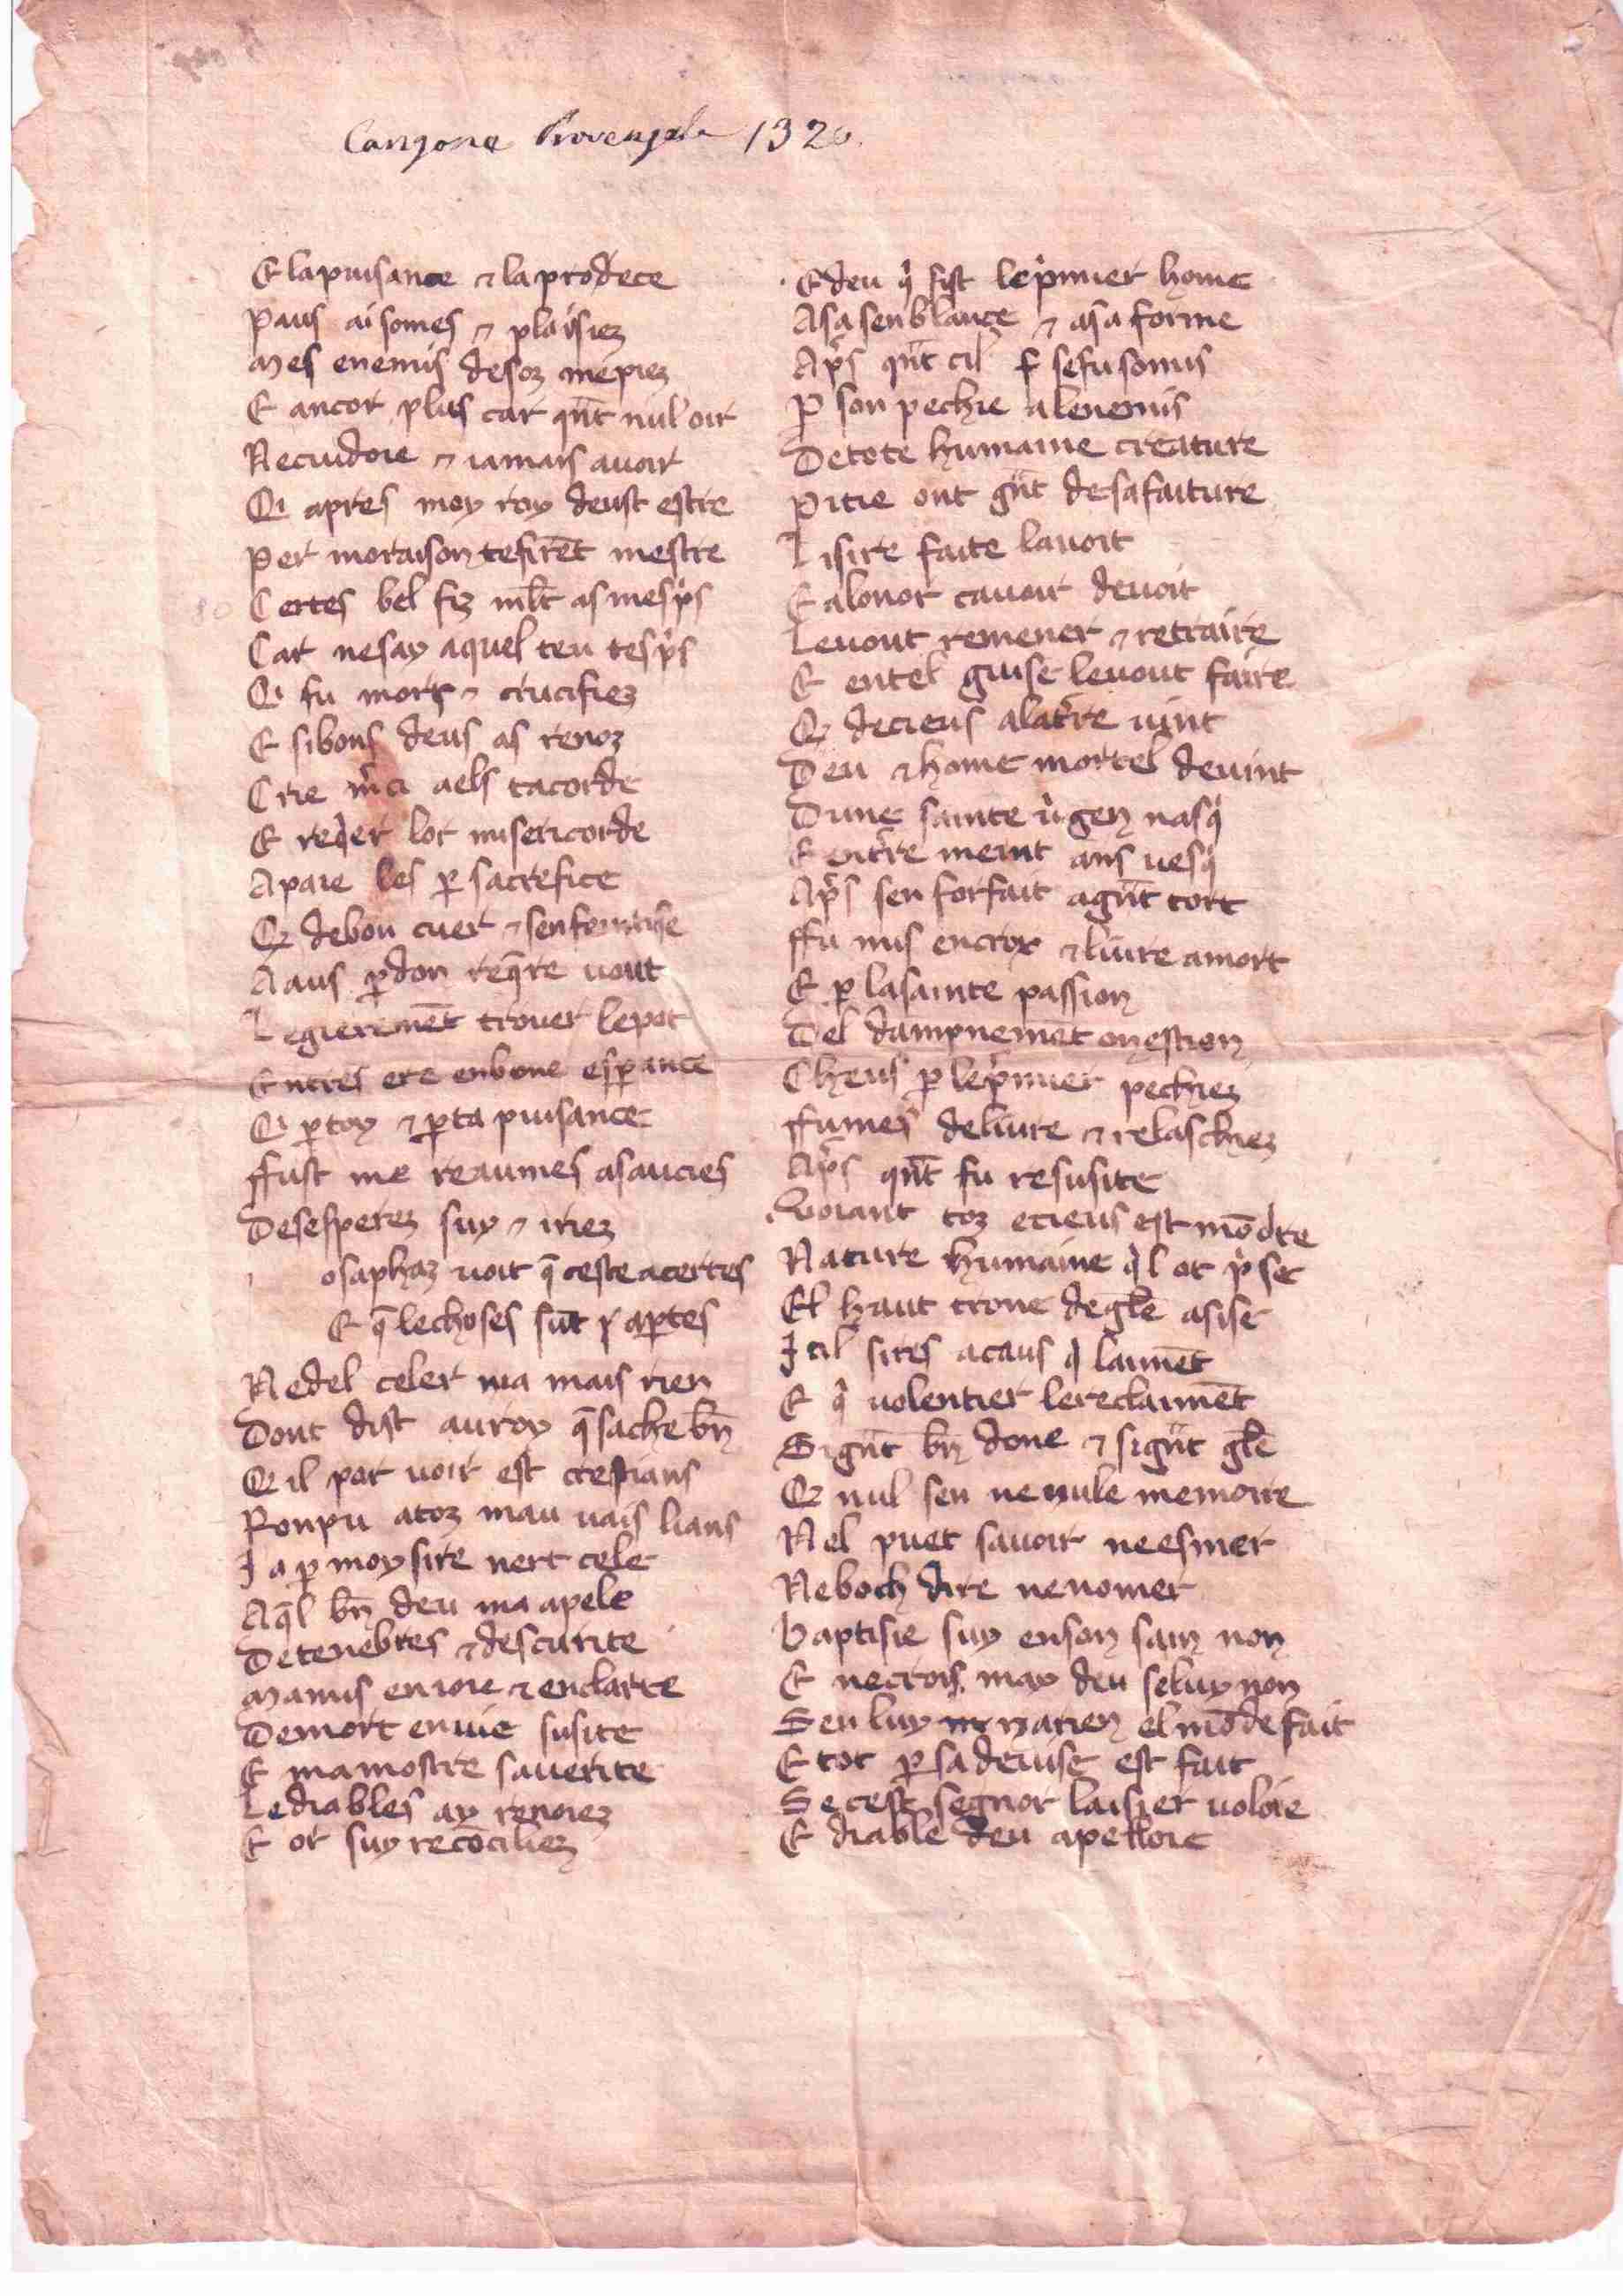 Canzone Provenzale 1320.
E la puisance & la prodece
Paus ai somes & plaisiez
Mes enemis desoz mepiez
E ancor plus car qnt̄ nul oir
Ne cuidoie & iamais auoir
Qi apres moy roy deust estre
Per moraison tefirēt mestre
Certes bel fiz ml̄t as mespͥs
Car nesay aquel teu tespͥs
Qi fu mors & crucifiez
E sibons deus as renoz
Crie m̾ci aels tacorde
E reqͥer lor misericorde
Apaie les ꝑ sacrefice
Qe debon cuer & senfeintise
Aaus ꝑdon reqͣ̄re uout
Legieremēt trouer lepot
Entres ere enbone esꝑance
Qi ꝑ toy & ꝑ ta puisance
ffust me reaumes asaucies
Desesperez suy & iriez
osaphaz uoit q̄ ceste acertes
E q̄ lechoses sūt y aꝑtes
Nedel celer nia mais rien
Dont dist auroy q̄ sache bn̄
Qe il por uoir est crestians
Ronpu atoz mau uais lians
Ia ꝑ moy sire nert cele
Aq̄l bn̄ deu ma apele
Detenebres & descurite
Mamis enioie & enclarte
Demort enuie susite
E mamostre sauerite
Lediables ay renoiez
E or suy recōciliez
Edeu qͥ fist lepͥmier home
Asasenblance & asaforme
Apͥs qnt̄ cil sefusomis
P son pechie alenemis
Detote humaine creature
Pitie ont gn̄t desafaiture
Lisire faite lauoit
E alonor cauoir deuoit
Leuout remener & retraire
E entel guise leuout faire
Qe decieus alat̾re uint
Deu & home mortel deuint
Dune sainte uͥgen nasqͥ
E ent̾re meint ans uesqͥ
Apͥs sen forfait agn̄t tort
ffu mis encroy & liure amort
E ꝑ lasainte passion
Del dampnemēt onestion
Cheus ꝑ lepͥmier pechiez
ffumes deliure & relaschiez
Apͥs qnt̄ fu resusite
Voiant toz ecieus est mōdte
Nature humaine qͥl ot pͥse
El haut trone degl̄e asise
Icil sires acaus qͥ laimēt
E qͥ uolentier lereclaimēt
Si gn̄t bn̄ done & si gn̄t gl̄e
Qe nul sen ne nule memoire
Nel puet sauoir neesmer
Neboch dire nenomer
Baptisie suy enson sain non
E necrois may deu seluy non
Sen luy narien elmōdefait
E tot ꝑ sa deuise est fait
Se cest segnor laisier uoloie
E diable deu apelloie